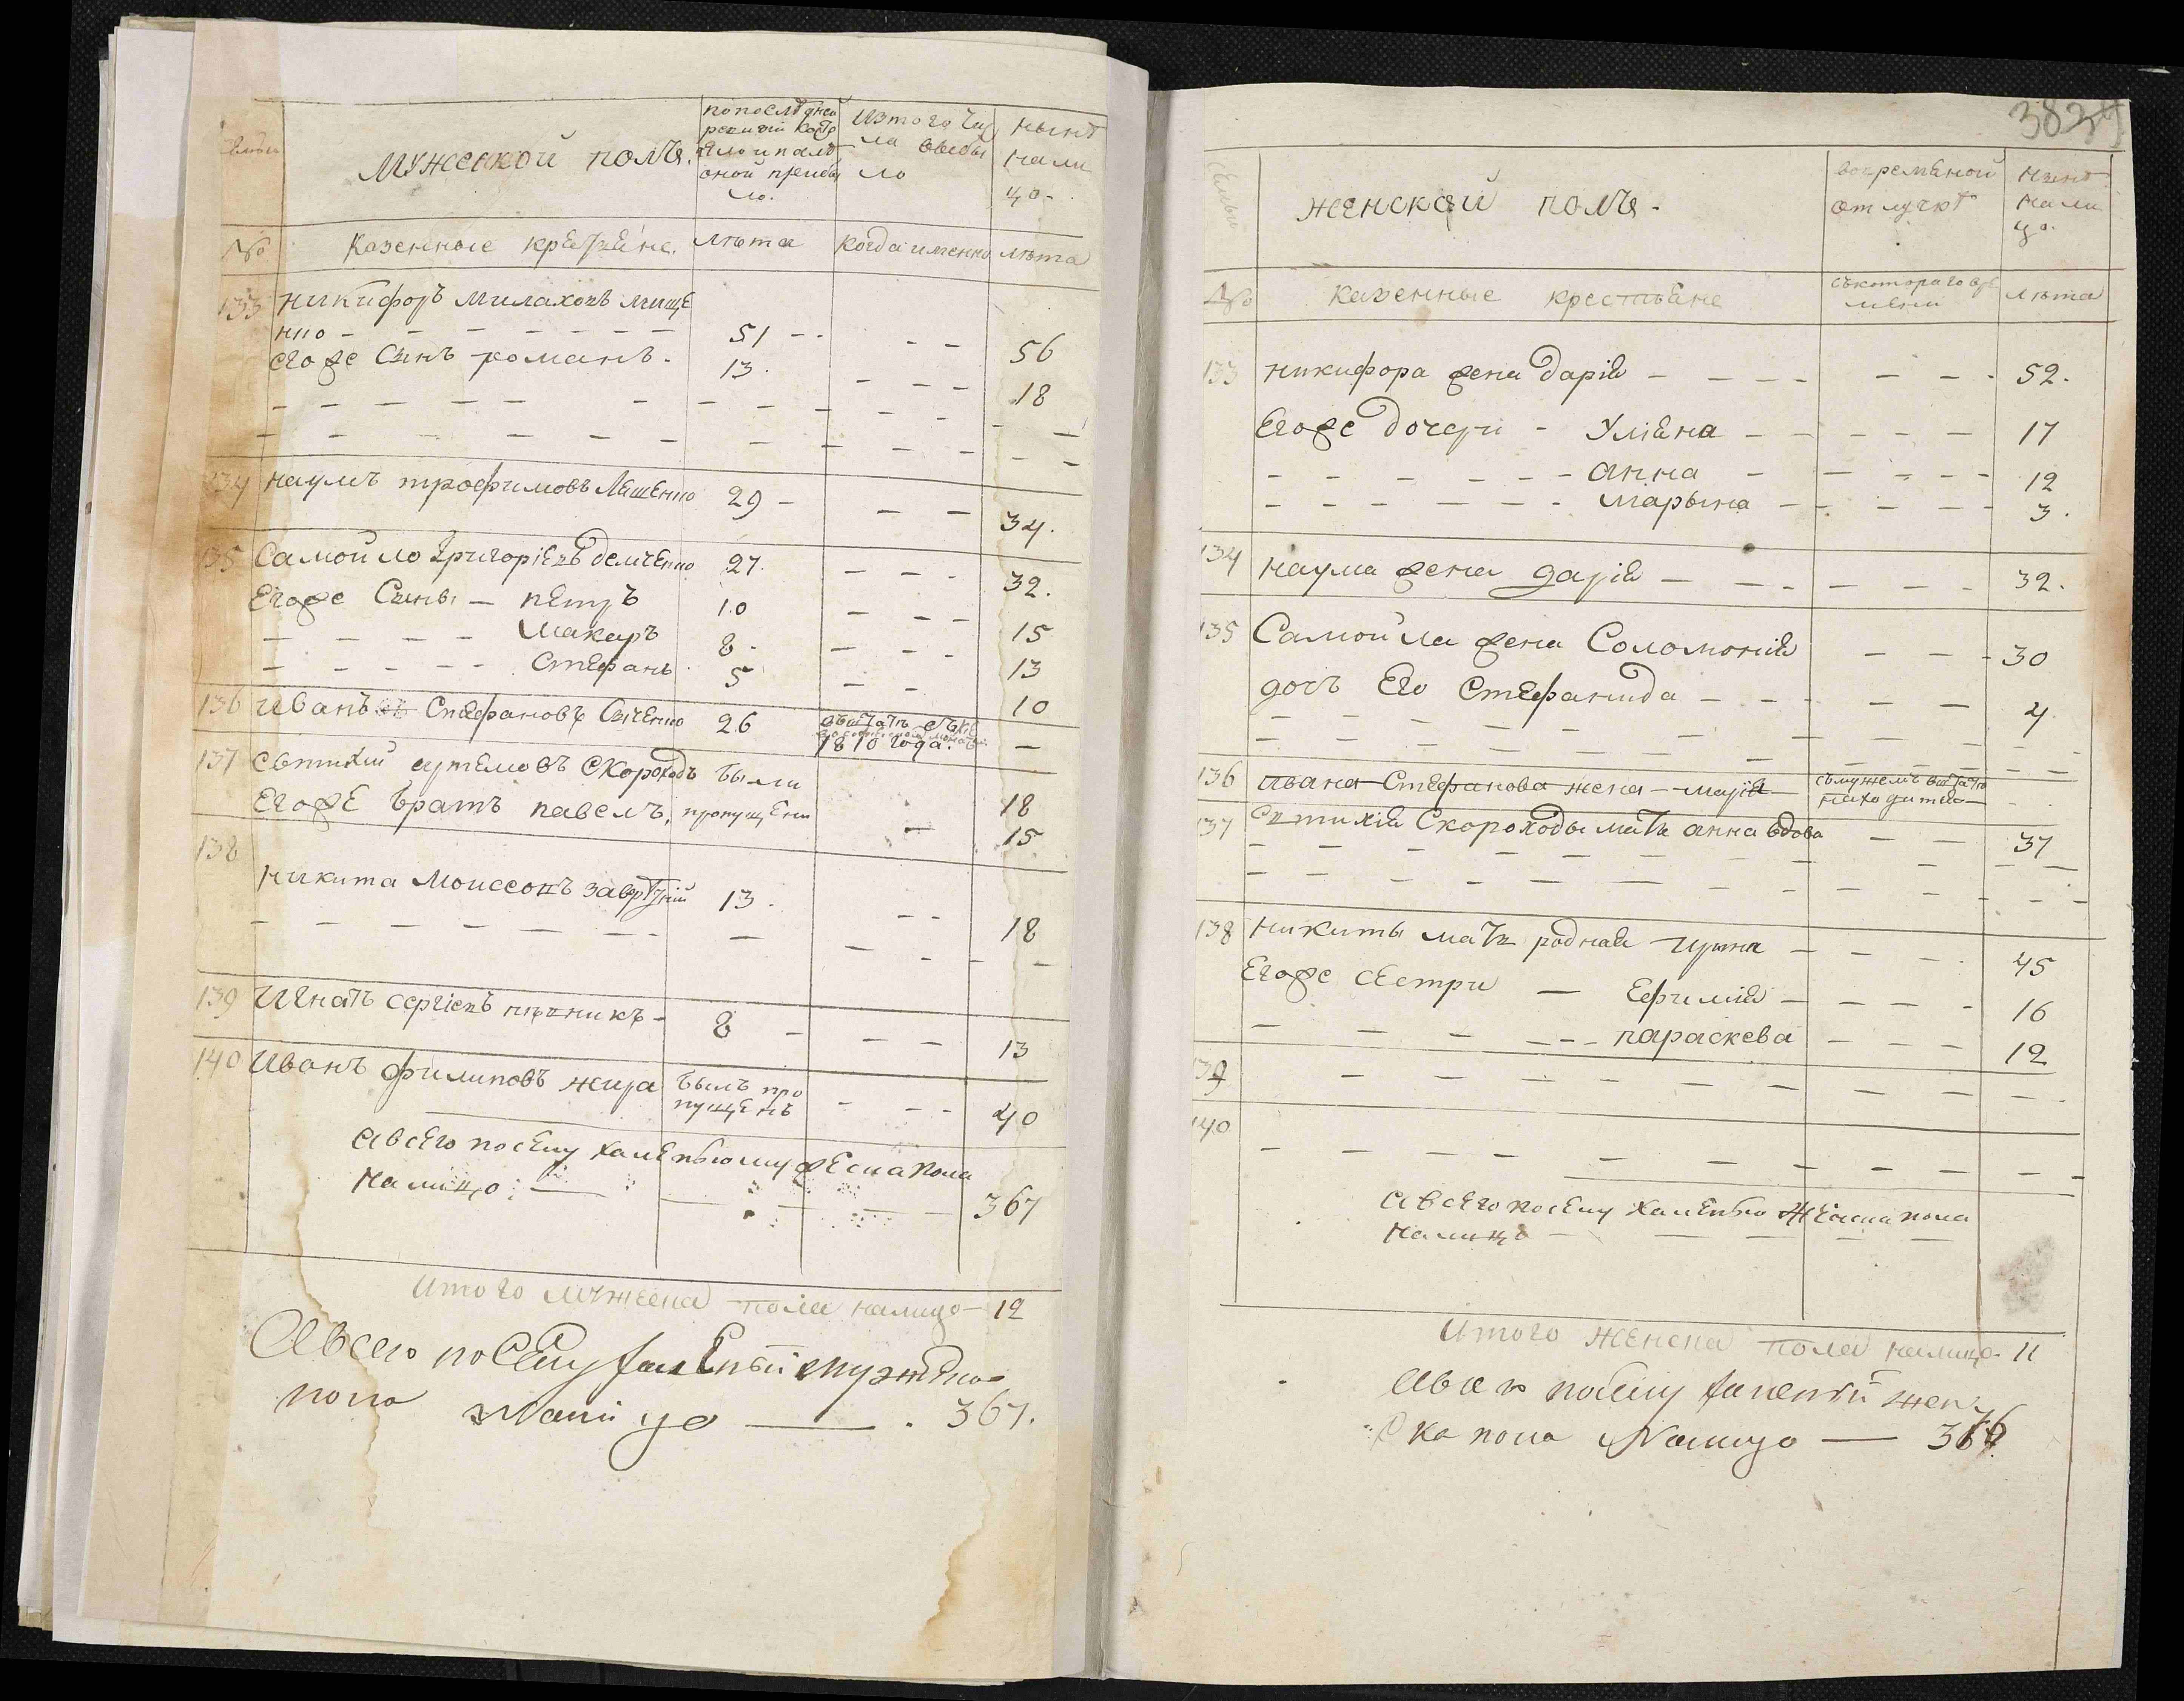 мужеской полъ.
по последней
ревизии состо
яло и после
оной прибы
ло.
Изтого чис
ла выбы
ло
нынѣ
нали
цо.
№
Казенные крестьяне.
лѣта
когда именно
лѣта
133 никифоръ Милаховъ
нко 51 56
егоже Сынъ романъ. 13. 18
134 наумъ трофимовъ Лященко 29 34.
135 Самойло григоріевъ демченко 27. 32.
Егоже Сыны петръ 10 15
Макаръ 8. 13
Стефанъ 5 10
136 Иванъ Стефановъ 26
1810 года.
137 евтихій артемовъ Скороходъ были 18
Егоже братъ павелъ, пропущены 15
138
никита Моисеовъ 13. 18
139 Игнатъ сергіевъ пѣвникъ 8 13
140 Иванъ филиповъ жира былъ про
пущенъ 40
Авсего посему мужеска пола
налицо 367
Итого мужеска пола налицо 12
Авсего посему мужеска
пола Налицо 367.
383
женской полъ.
вовременой
отлучкѣ
нынѣ
нали
цо.
№
казенные крестьяне
съкотораго вре
мени
лѣта
133 никифора жена дарія 52.
Егоже дочери Уліяна 17
анна 12
марьина 3.
134 наума жена дарія 32.
135 Самойла жена Соломонія 30
дочь Его Стефанида 4
136 Ивана Стефанова жена марія съмужемъ
находится
137 евтихія Скорохода мать анна вдова 37
138 никиты мать родная ирина 45
Егоже сестри Ефимія 16
параскева 12
139
140
Авсего посему женска пола
налицо
Итого женска пола налицо 11
Авсего посему жен
ска пола Налицо 376